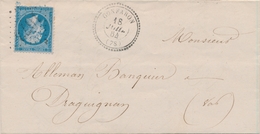 18
Monsieur
Alleman Banquier
à
Draguignan
(Var)